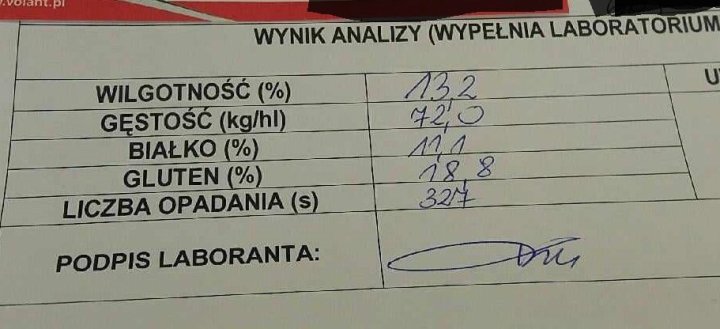 .volant.pl
WYNIK ANALIZY (WYPEŁNIA LABORATORIUM
WILGOTNOŚĆ (%) 13,2
GĘSTOŚĆ (kg/hl) 72,0
BIAŁKO (%) 11,1
GLUTEN (%) 18,8
LICZBA OPADANIA (s) 327
PODPIS LABORANTA: